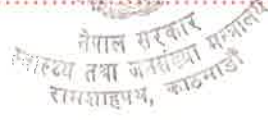 नेपाल सरकार
स्वास्थ्य तथा जनसंख्या मन्त्रालय
रामशाहपथ, काठमाडौं